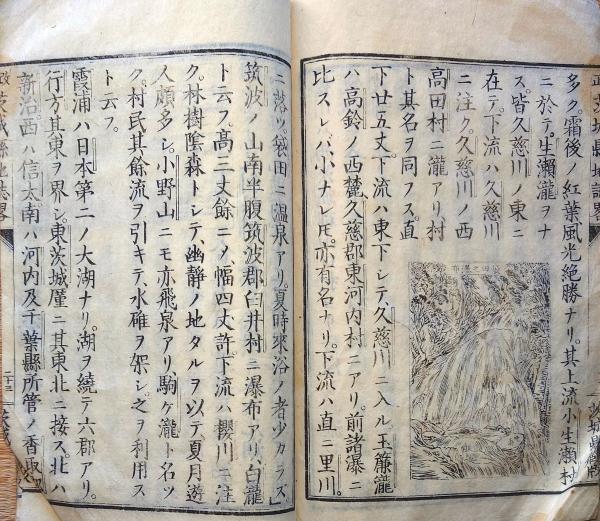 多ク。霜後ノ紅葉風光絶勝ナリ。其上流小生瀬村
ニ於テ。生瀬瀧ヲナ
ス。皆久慈川ノ東ニ
在テ。下流ハ久慈川
ニ注ク。久慈川ノ西
高田村ニ瀧アリ。村
ト其名ヲ同フス。直
下廿五丈。下流ハ東下シテ。久慈川ニ入ル。玉簾瀧
ハ高鈴ノ西麓久慈郡東河内村ニアリ。前諸瀑ニ
比スレバ。小ナレ𪜈。亦有名ナリ。下流ハ直ニ里川
ニ落ツ。袋田ニ温泉アリ。夏時來浴ノ者少カラズ
筑波ノ山南半腹筑波郡臼井村ニ瀑布アリ。白瀧
ト云フ。高三丈餘ニメ。幅四丈許。下流ハ櫻川ニ注
ク。林樹陰森トシテ。幽靜ノ地タルヲ以テ。夏月遊
人頗多シ。小野山ニモ亦飛泉アリ。駒ケ瀧ト名ツ
ク。村民其餘流ヲ引キテ。水碓ヲ架シ。之ヲ利用ス
ト云フ。
霞浦ハ日本第二ノ大湖ナリ。湖ヲ繞テ六郡アリ。
行方其東ヲ界シ。東茨城厪ニ其東北ニ接ス。北ハ
新治。西ハ信太。南ハ河内及千葉縣所管ノ香取
茨城縣地誌畧
二十三